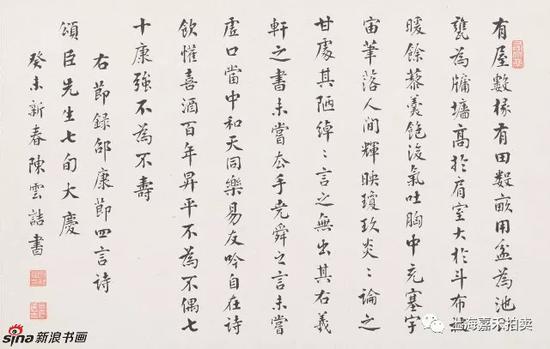 有屋數椽有田數畝用盆為池
甕為牖墻高於肩室大於斗布被
暖餘藜羹飽後氣吐胸中充塞宇
宙筆落人間輝映瓊玖炎〻論之
甘處其陋綽〻言之無出其右羲
軒之書未嘗去手堯舜之言未嘗
虛口當中和天同樂易友吟自在詩
飲懽喜酒百年昇平不為不偶七
十康強不為不壽
右節錄邵康節四言詩
頌臣先生七旬大慶
癸未新春陳雲誥書
sina新浪书画
上海嘉禾拍卖